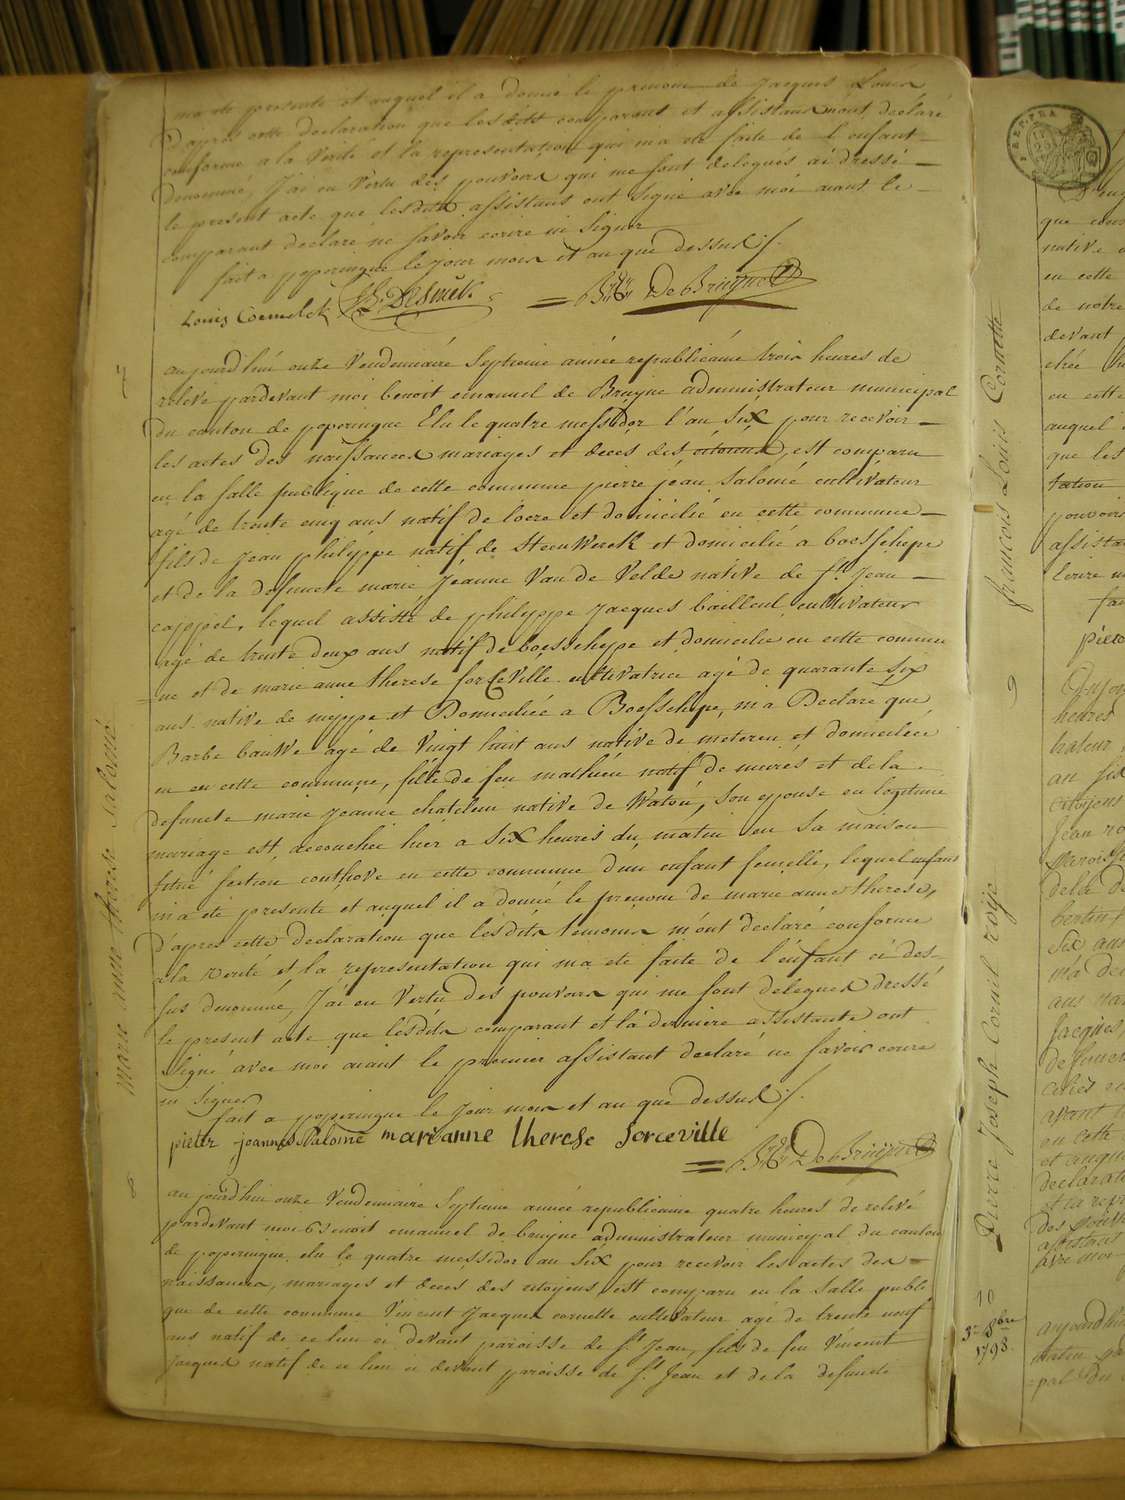 m'a eté presenté et auquel il a donné le prenom de Jacques Louis
D'apres cette declaration que lesdits comparant et assistans m'ont declaré
conforme a la verite et la representation qui m'a eté faite de l'enfant
denommé, J'ai en vertu des pouvoirs qui me sont delegués ai dressé
le present acte que lesdits assistans ont signé avec moi aiant le
comparant declaré ne savoir ecrire ni signer
fait a poperingue le jour mois et an que dessus
Louis Coemelck J. B. D'Esmet. B. Em De Bruyne
7
aujourd'hui onze Vendemiaire Septieme année republicaine trois heures de
relevé pardevant moi benoit emanuel de Bruyne administrateur municipal
du canton de poperingue Elu le quatre messidor l'an Six pour recevoir
les actes des naissances mariages et deces des citoiens, est comparu
en la salle publique de cette commune pierre jean Salomé cultivateur
agé de trente cinq ans natif de locre et domicilié en cette commune
fils de Jean philyppe natif de Steenwerck et domicilié a boesschepe
et de la defuncte marie Jeanne Van de Velde native de St Jean
cappel, lequel assisté de philyppe Jacques bailleul cultivateur
agé de trente deux ans natif de boesschepe et domicilié en cette commu
=ne et de marie anne therese forceville cultivatrice agé de quarante six
ans native de nieppe et Domiciliée a Boesschepe, m'a Declaré que
Barbe bauwe agé de Vingt huit ans native de meteren et domiciliée
en cette commune, fille de feu mathieu natif de meures et de la
defuncte marie jeanne chatelein native de Watou, son epouse en legitime
mariage est accouchée hier a six heures du matin en sa maison
situé section couthove en cette commune d'un enfant femelle, lequel enfant
m'a eté presenté et auquel il a donné le prenom de marie anne therese,
d'apres cette declaration que lesdits temoins m'ont declaré conforme
a la verité et la representation qui m'a eté faite de l'enfant ci des=
sus denommé, J'ai en Vertu des pouvoirs qui me sont delegués dressé
le present acte que lesdits comparant et la derniere assistante ont
signé avec moi aiant le premier assistant declaré ne savoir ecrire
ni signer
fait a poperingue le jour mois et an que dessus
pieter joannes Salome marianne therese forceville
B. Em De Bruyne
marie anne therese Salomé
8
aujourd'hui onze Vendemiaire Septieme année republicaine quatre heures de relevé
pardevant moi Benoit emanuel de bruyne administrateur municipal du canton
de poperingue elu le quatre messidor an six pour recevoir les actes des
naissances, mariages et deces des citoyens est comparu en la salle publi
que de cette commune Vincent Jacques cornette cultivateur agé de trente neuf
ans natif de ce lieu ci devant paroisse de St Jean, fils de feu Vincent
Jacques natif de ce lieu ci devant paroisse de St Jean et de la defuncte
francois Louis Cornette
9
Pierre Joseph Corneil roije
10
3e 8bre
1798.
que
native
en cette
de notre
devant
en cette
auquel
que les
tation
pouvoirs
assista
Ecrire
heures
an six
citoyens
Jean
de la
Six ans
m'a de
Jacques,
en cette
declarat
avec moi
aujourdhui
matin
=pal du